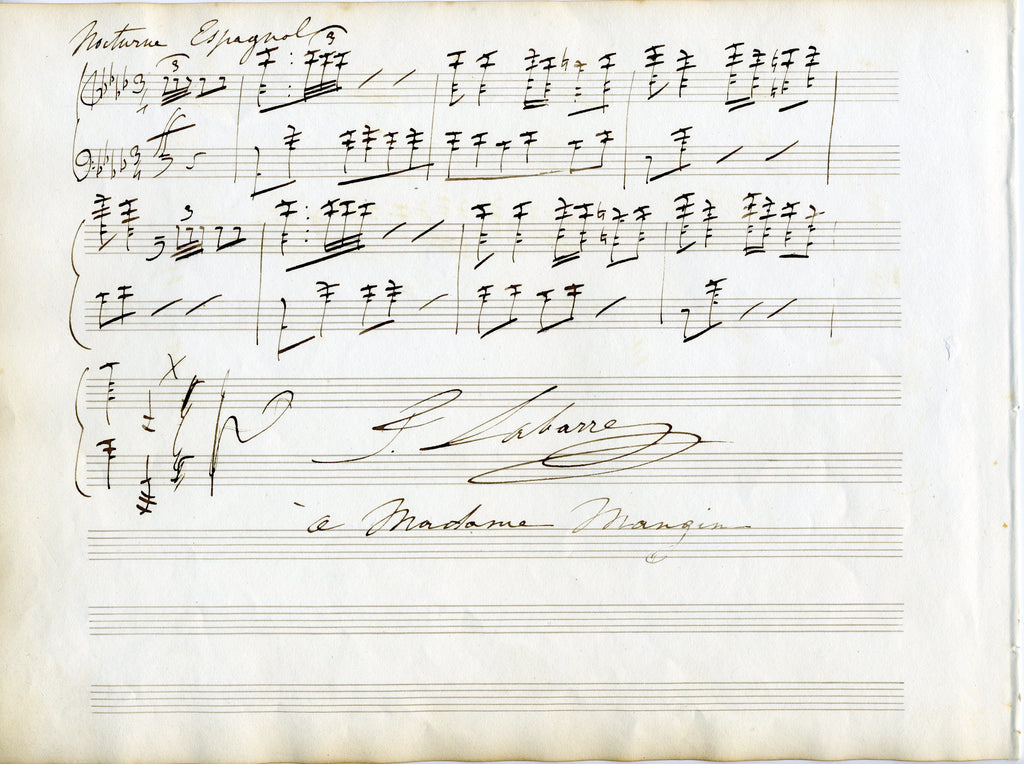 Nocturne Espagnol
3 3
3
4
3
4
3
T. Labarre
à Madame Mangin